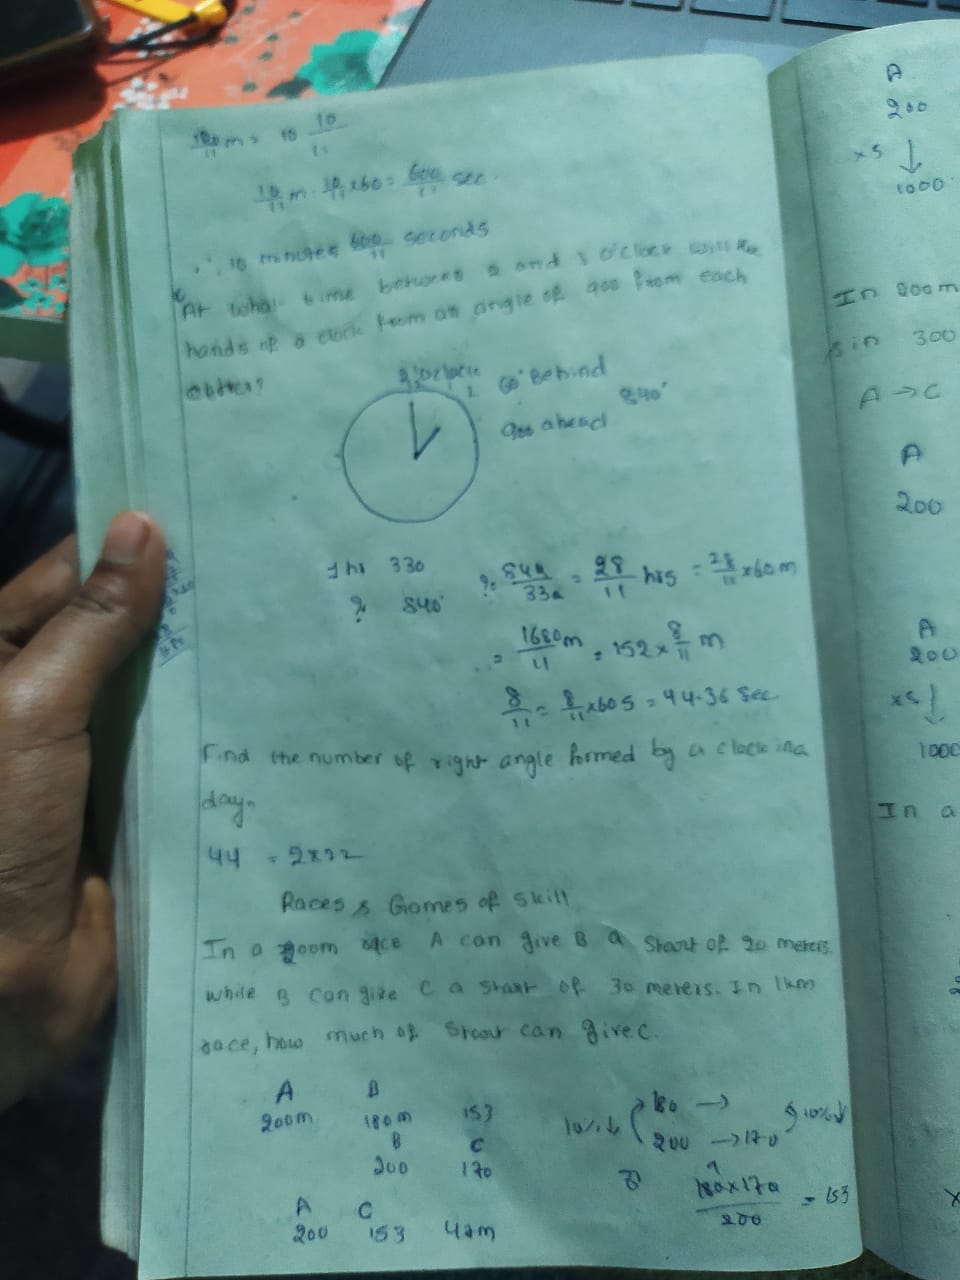 120/11 m = 10 10/11
10/11 m = 10/11 x 60 = 600/11 sec.
∴ 10 minutes 600/11 seconds
At what time between 2 and 3 o'clock will the
hands of a clock from an angle of 900 from each
other?
2'o clock
60° Behind
840°
900 ahead
1 hr 330
? 840°
?= 840/330 = 28/11 hrs = 28/11 x60m
= 1680m/11 = 152 x 8/11 m
8/11 = 8/11 x60 s = 44.36 sec
Find the number of right angle formed by a clock in a
day.
44 = 2x22
Races & Games of Skill
In a 200m race A can give B a start of 20 meters
while B can give C a start of 30 meters. In 1km
race, how much of start can give C.
A B
200m 180m 153
B C
200 170
A C
200 153 47m
10%↓ 180 →
200 → 170
10%↓
180x170/200 = 153
A
200
x5 ↓
1000
In 200m
in 300
A → C
A
200
A
200
x5 ↓
1000
In a